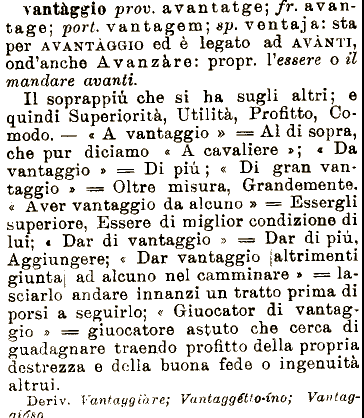 vantàggio prov. avantatge; fr. avan-
tage; port. vantagem; sp. ventaja: sta
per AVANTÀGGIO ed è legato ad AVÀNTI,
ond'anche Avanzàre: propr. l'essere o il
mandare avanti.
Il soprappiú che si ha sugli altri; e
quindi Superiorità, Utilità, Profitto, Co-
modo. — « A vantaggio » = Al di sopra,
che pur diciamo « A cavaliere »; « Da
vantaggio » = Di piú; « Di gran van-
taggio » = Oltre misura, Grandemente.
« Aver vantaggio da alcuno » = Essergli
superiore, Essere di miglior condizione di
lui; « Dar di vantaggio » = Dar di piú,
Aggiungere; « Dar vantaggio [altrimenti
giunta] ad alcuno nel camminare » = la-
sciarlo andare innanzi un tratto prima di
porsi a seguirlo; « Giuocator di vantag-
gio » = giuocatore astuto che cerca di
guadagnare traendo profitto della propria
destrezza e della buona fede o ingenuità
altrui.
Deriv. Vantaggiàre; Vantaggétto-íno; Vantag-
gióso